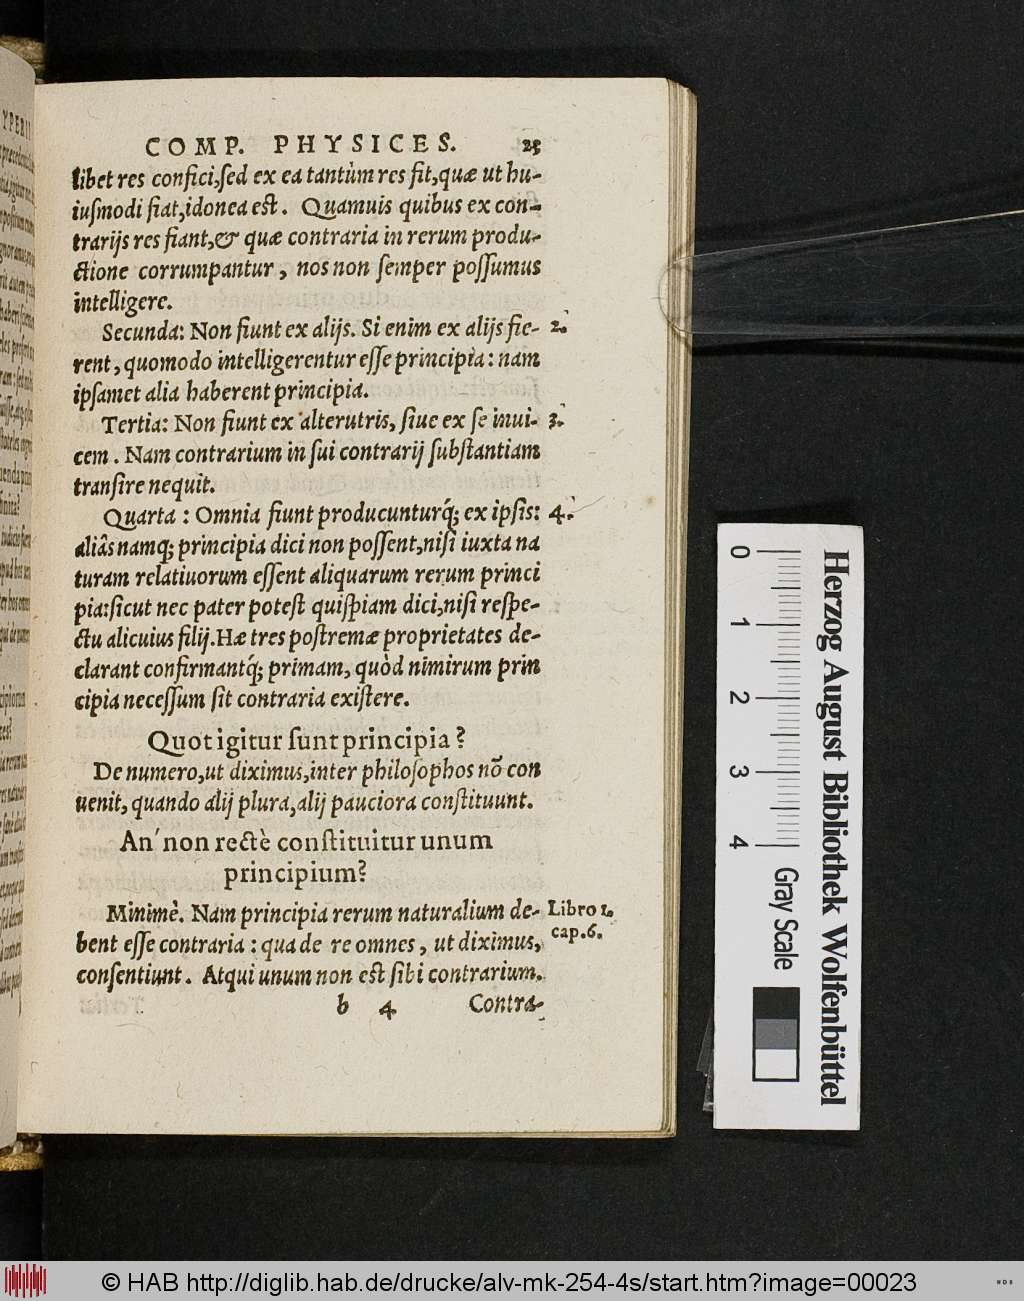 COMP. PHYSICES. 25
libet res confici,ſed ex ea tantùm res fit,quæ ut hu-
iuſmodi fiat,idonea eſt. Quamuis quibus ex con-
trarijs res fiant,& quæ contraria in rerum produ-
ctione corrumpantur, nos non ſemper poſſumus
intelligere.
Secunda: Non fiunt ex alijs. Si enim ex alijs fie- 2.
rent, quomodo intelligerentur eſſe principia: nam
ipſamet alia haberent principia.
Tertia: Non fiunt ex alterutris, ſiue ex ſe inui- 3.
cem. Nam contrarium in ſui contrarij ſubſtantiam
tranſire nequit.
Quarta: Omnia fiunt producunturq́; ex ipſis: 4.
aliâs namq; principia dici non poſſent,niſi iuxta na
turam relatiuorum eſſent aliquarum rerum princi
pia:ſicut nec pater poteſt quiſpiam dici,niſi reſpe-
ctu alicuius filij.Hæ tres poſtremæ proprietates de-
clarant confirmantq́; primam, quòd nimirum prin
cipia neceſſum ſit contraria exiſtere.
Quot igitur ſunt principia?
De numero,ut diximus,inter philoſophos nõ con
uenit, quando alij plura,alij pauciora conſtituunt.
An' non rectè conſtituitur unum
principium?
Minimè. Nam principia rerum naturalium de- Libro 1.
bent eſſe contraria: qua de re omnes, ut diximus, cap.6.
conſentiunt. Atqui unum non eſt ſibi contrarium.
b 4 Contra-
Herzog August Bibliothek Wolfenbüttel
0 1 2 3 4 Gray Scale
© HAB http://diglib.hab.de/drucke/alv-mk-254-4s/start.htm?image=00023